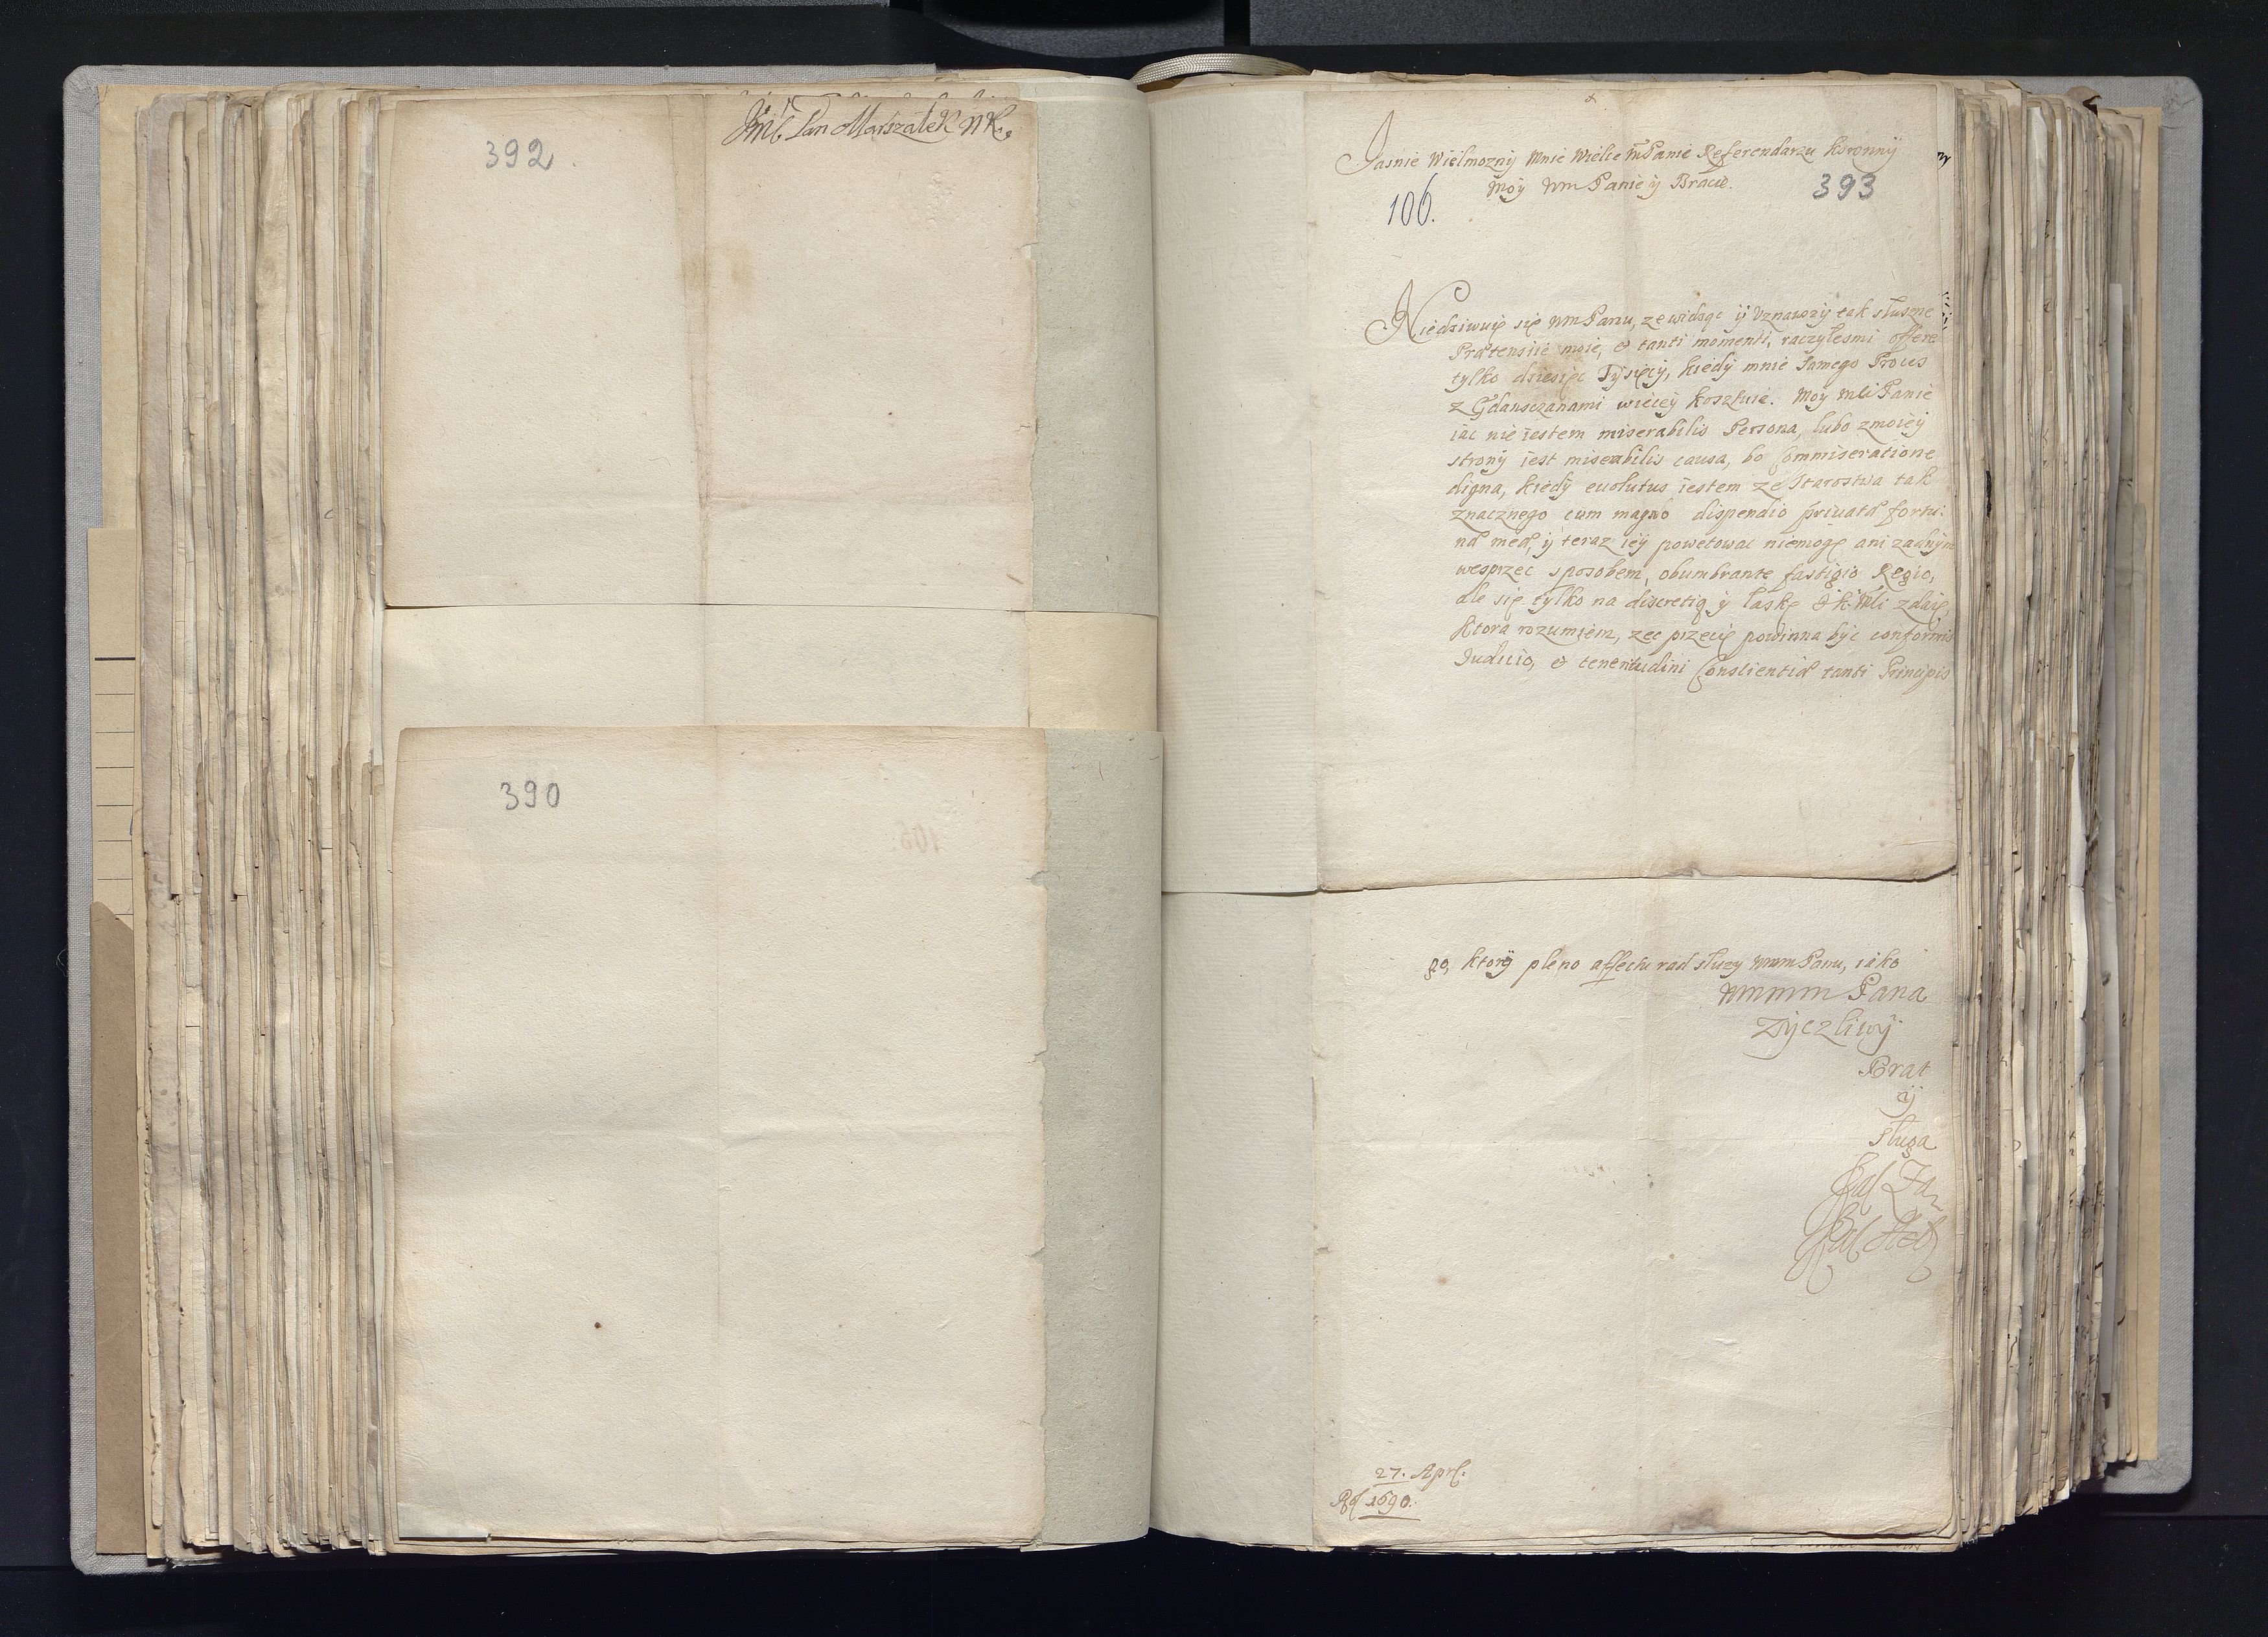 392.
Jmć Pan Marszałek WK.
390
Jasnie Wielmozny Mnie Wielce MPanie Referendarzu Koronny
Moy WmPanie y Bracie.
393
106.
Niedziwuię się WmPanu, ze widząc y Vznawszy tak słuszne
Prætensiie moie, et tanti momenti, raczyłesmi offere
tylko dziesięc Tysięcy, kiedy mnie samego Proces
z Gdansczanami więcey kosztuie. Moy Panie
iac nie iestem miserabilis Persona, lubo zmoiey
strony iest miserabilis causa, bo Commiseratione
digna, kiedy euolutus iestem ze Starostwa tak
znacznego cum magno dispendio priuatæ fortu:
næ meæ, y teraz iey powetowac niemogę ani zadnym
wesprzec sposobem, obumbrante fastigio Regio,
ale się tylko na discretią y łaskę JKMci zdaię,
ktora rozumiem, zec przecię powinna byc conformis
Judicio, et Conscientiæ tanti Principis
go, ktory pleno affectu rad słuzy WmmPanu, iako
Wmmm Pana
Zyczliwy
Brat
y
Sługa
27. Apr.
1690.